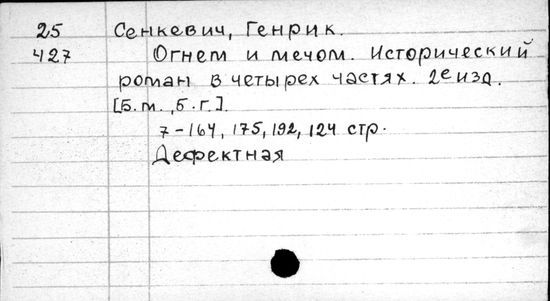 25 Сенкевич, Генрик.
427 Огнем и мечом. Исторический
роман в четырех частях. 2е изд.
[Б.м., б.г.].
7-164, 175, 192, 124 стр.
Дефектная